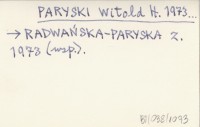 PARYSKI Witold H. 1973...
→ RADWAŃSKA-PARYSKA Z.
1973 (wsp.).